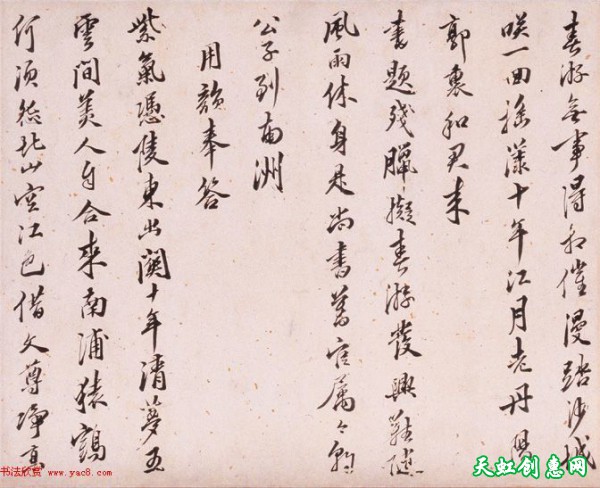 春游無事得催漫踏沙城
咲一回搖十年江月老丹陽
郭裏和君来
書題殘臘擬春游發興難隨
風雨休身是尚書舊官属々
公子到南洲
用韻奉答
紫氣憑陵東出關十年清夢五
雲間美人自合来南浦猿鶴
何須怨北山空江色借文尊淨
书法欣赏 www.yac8.com
天虹创惠网